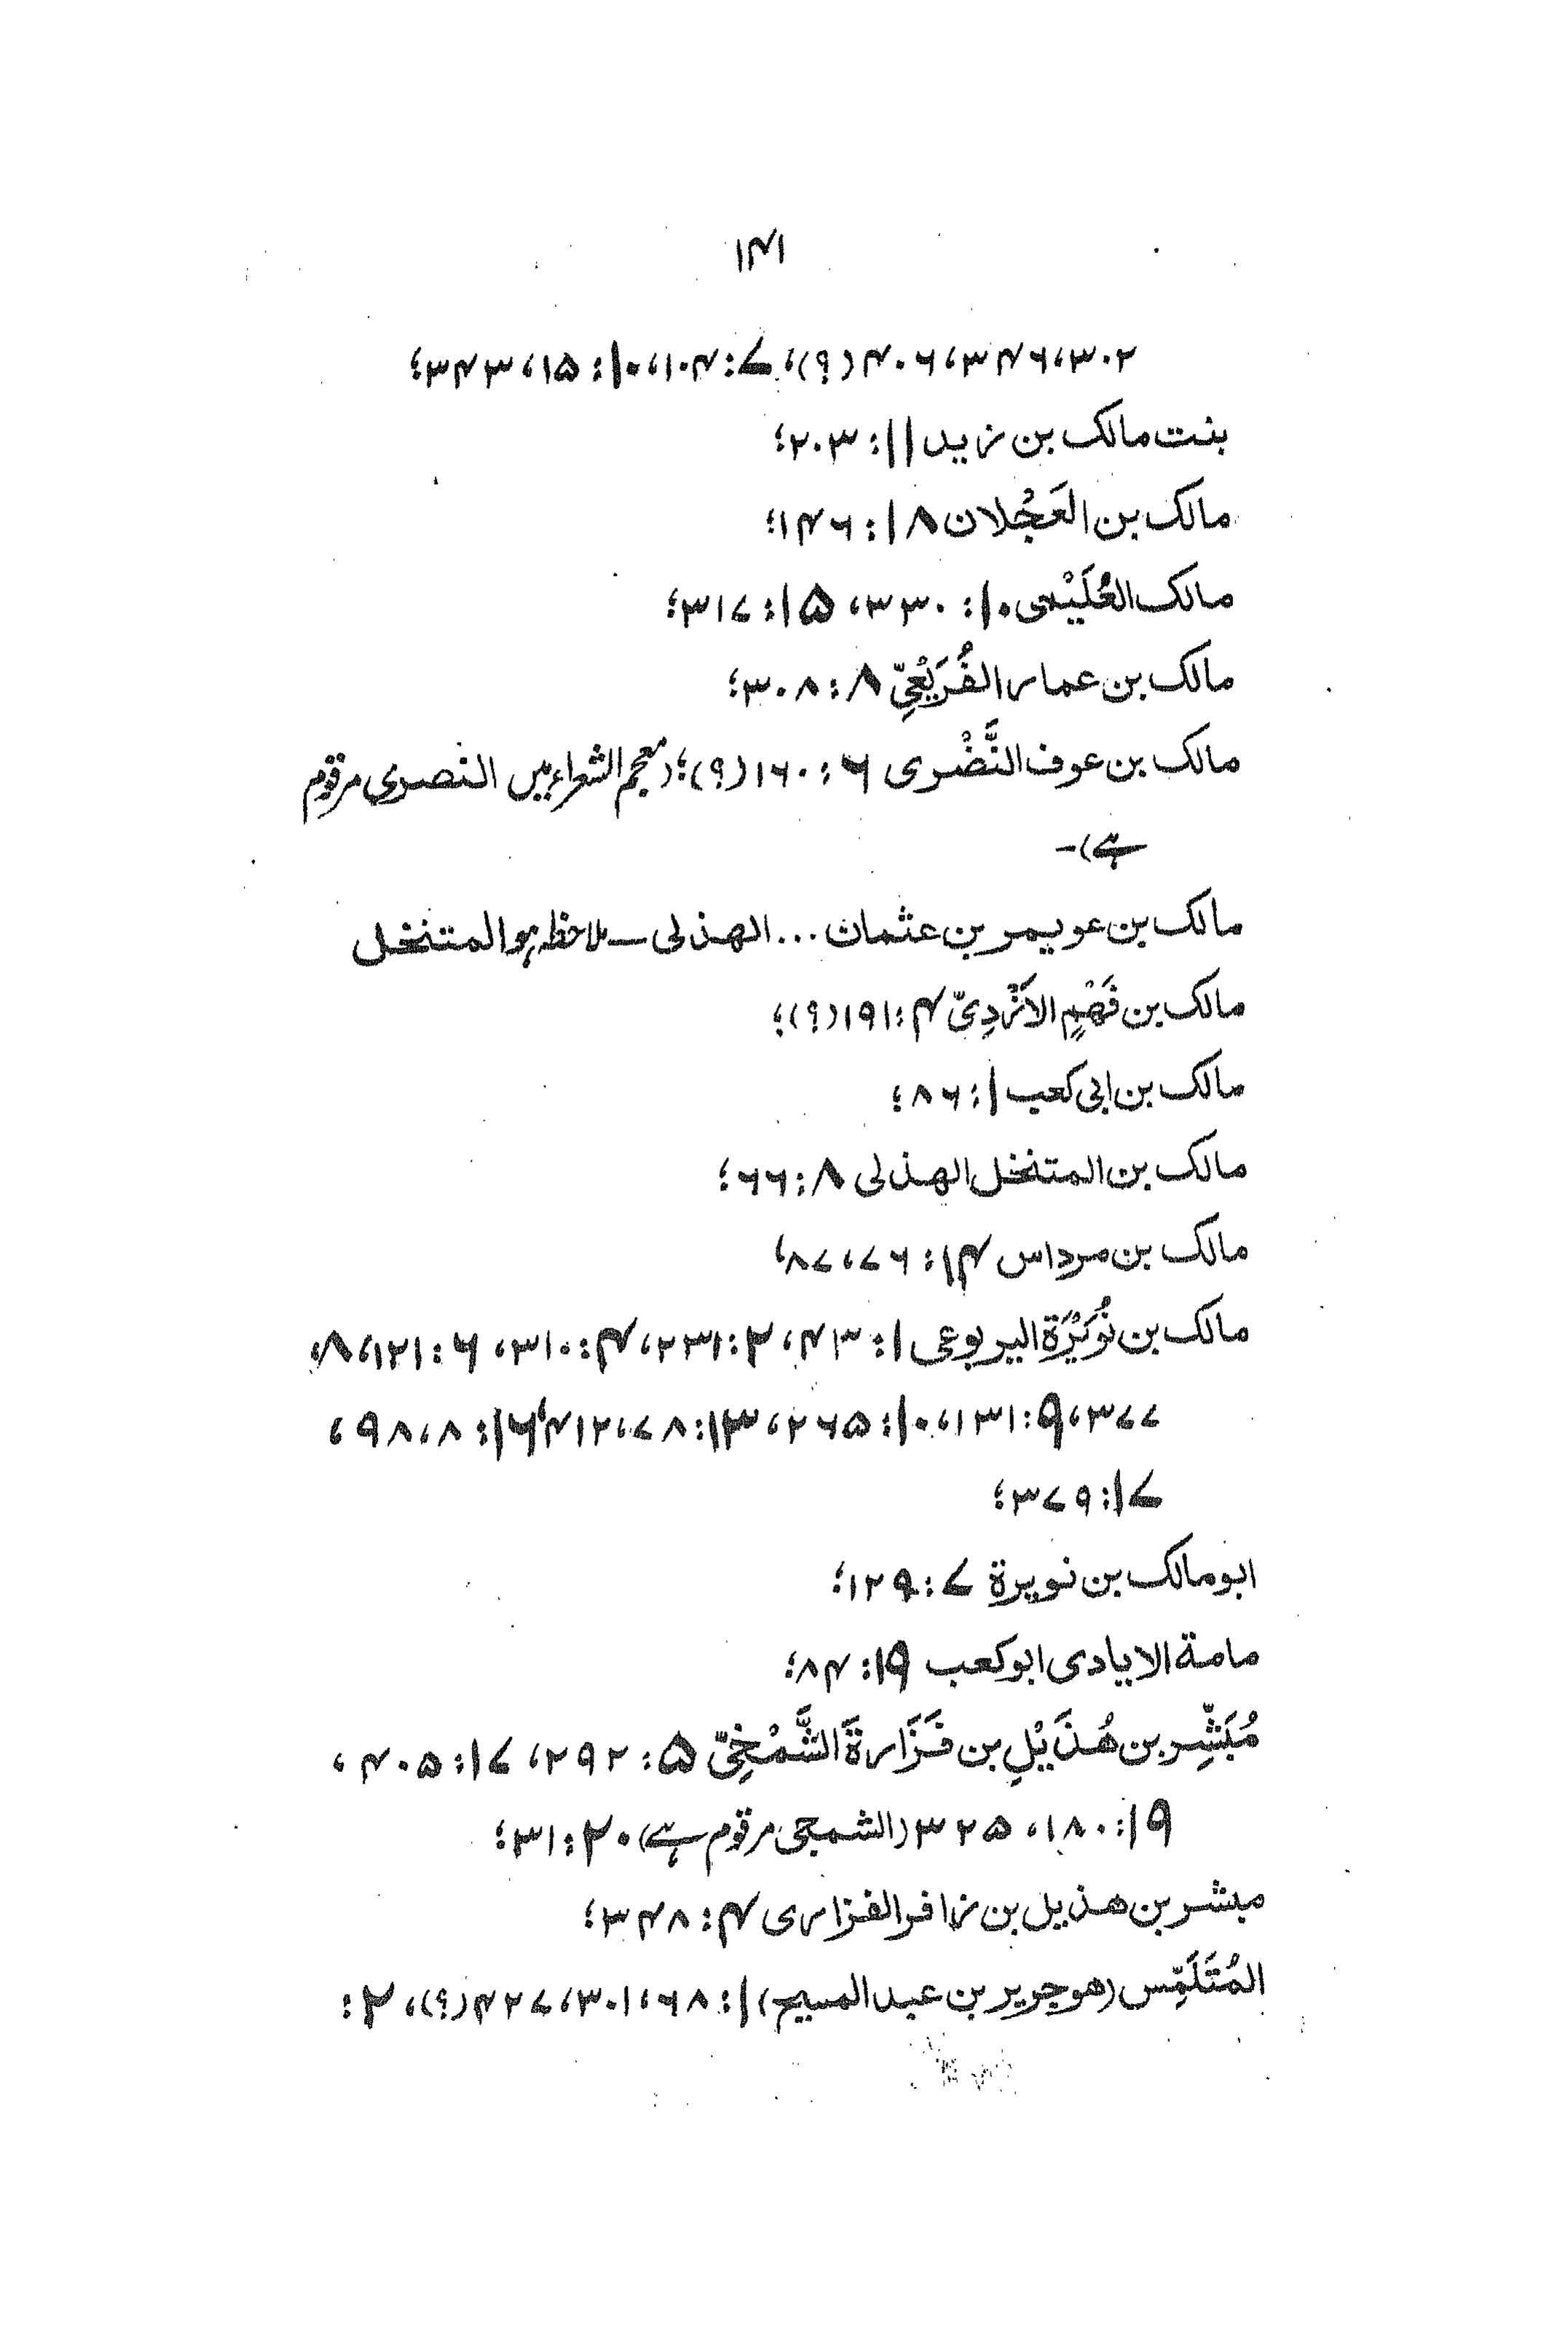 ۱۴۱
۳۰۲، ۳۴۶، ۴۰۶ (؟)، ۷: ۱۰۴، ۱۰: ۱۵، ۳۴۳؛
بنت مالک بن زید ۱۱: ۲۰۳؛
مالک بن العَجْلان ۱۸: ۱۴۶؛
مالک العُلَیْمی ۱۰: ۳۳۰، ۱۵: ۳۱۷؛
مالک بن عمار القُرَیْعِیّ ۸: ۳۰۸؛
مالک بن عوف النَّصْری ۶: ۱۶۰ (؟)؛ (معجم الشعراء میں النصری مرقوم
ہے)۔
مالک بن عویمر بن عثمان ... الهذلی — ملاحظہ ہو المتنخل
مالک بن فَهْمٍ الاَزْدِیّ ۴: ۱۹۱ (؟)؛
مالک بن ابی کعب ۱: ۸۶؛
مالک بن المتنخل الهذلی ۸: ۶۶؛
مالک بن مرداس ۱۴: ۷۶، ۸۷،
مالک بن نُوَیْرَة الیربوعی ۱: ۴۳، ۲: ۲۳۱، ۴: ۳۱۰، ۶: ۱۲۱، ۸:
۳۷۷، ۹: ۱۳۱، ۱۰: ۲۶۵، ۱۳: ۷۸، ۴۱۲، ۱۶: ۸، ۹۸،
۱۷: ۳۷۹؛
ابو مالک بن نویرة ۷: ۱۲۹؛
مامة الایادی ابو کعب ۱۹: ۸۴؛
مُبَشِّر بن هُذَیْلِ بن فَزَارةَ الشَّمْخِیّ ۵: ۲۹۲، ۱۷: ۴۰۵،
۱۹: ۱۸۰، ۳۲۵ (الشمجی مرقوم ہے) ۲۰: ۳۱؛
مبشر بن هذیل بن زافر الفزاری ۴: ۳۴۸؛
المُتَلَمِّس (هو جریر بن عبد المسیح) ۱: ۶۸، ۳۰۱، ۴۲۷ (؟)، ۲: